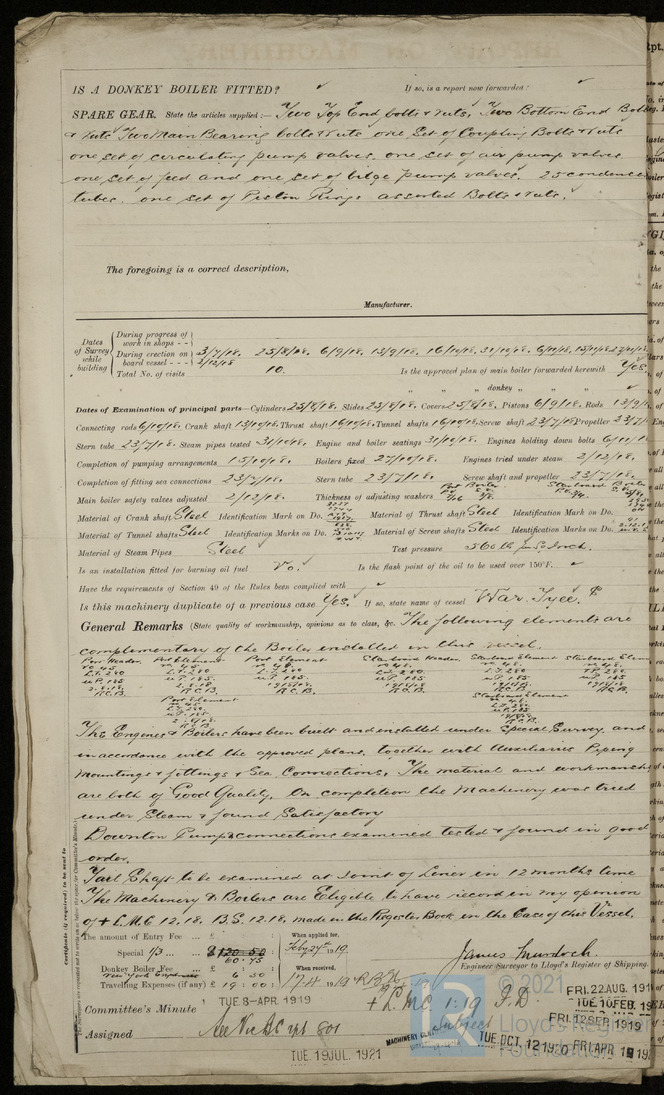 IS A DONKEY BOILER FITTED? If so, is a report now forwarded?
SPARE GEAR. State the articles supplied:— Two Top End bolts & Nuts, Two Bottom End Bolts
& Nuts Two Main Bearing bolts & Nuts one Set of Coupling Bolts & Nuts
one set of circulating pump valves, one set of air pump valves
one set of feed and one set of bilge pump valves. 25 condenser
tubes. one set of Piston Rings assorted Bolts & Nuts.
The foregoing is a correct description,
Manufacturer.
Dates of Survey while building
During progress of work in shops - -
During erection on board vessel - - 3/7/18. 25/8/18. 6/9/18. 13/9/18. 16/10/18. 31/10/18. 6/11/18.
2/12/18
Total No. of visits 10. Is the approved plan of main boiler forwarded herewith Yes.
" " " donkey " " "
Dates of Examination of principal parts—Cylinders 25/8/18. Slides 25/8/18. Covers 25/8/18. Pistons 6/9/18. Rods 13/9/
Connecting rods 6/10/18. Crank shaft 13/10/18. Thrust shaft 16/10/18. Tunnel shafts 16/10/18. Screw shaft 23/7/18. Propeller 23/7/
Stern tube 23/7/18. Steam pipes tested 31/10/18. Engine and boiler seatings 31/10/18. Engines holding down bolts 6/11/1
Completion of pumping arrangements 15/10/18. Boilers fixed 27/10/18. Engines tried under steam 2/12/18.
Completion of fitting sea connections 23/7/18. Stern tube 23/7/18. Screw shaft and propeller 23/7/18.
Main boiler safety valves adjusted 2/12/18. Thickness of adjusting washers Port Boiler Starboard Boiler
Material of Crank shaft Steel Identification Mark on Do. Material of Thrust shaft Steel Identification Mark on Do.
Material of Tunnel shafts Steel Identification Marks on Do. Material of Screw shafts Steel Identification Marks on Do.
Material of Steam Pipes Steel Test pressure 560 lb per Sq Inch.
Is an installation fitted for burning oil fuel No. Is the flash point of the oil to be used over 150°F.
Have the requirements of Section 49 of the Rules been complied with
Is this machinery duplicate of a previous case Yes. If so, state name of vessel War Tyee.
General Remarks (State quality of workmanship, opinions as to class, &c. The following elements are
complimentary of the Boiler installed in this vessel.
Port Header. Port Element Port Element Starboard Header. Starboard Element Starboard Element
Port Element Starboard Element
The Engines & Boilers have been built and installed under Special Survey, and
in accordance with the approved plans, together with Auxiliaries Piping
Mountings & fittings & Sea Connections. The material and workmanship
are both of Good Quality. On completion the Machinery was tried
under Steam & found Satisfactory
Downton Pump & connections examined tested & found in good
order.
Tail Shaft to be examined at Joint of Liner in 12 months time
The Machinery & Boilers are Eligible to have record in my opinion
of + L.M.C 12.18. B.S. 12.18. made in the Register Book in the Case of this Vessel.
Certificate (if required) to be sent to
The amount of Entry Fee ... £ : : When applied for,
Special 1/3 ... £ 120 50 Feby 24th 1919.
60.75
Donkey Boiler Fee ... £ : : When received,
New York expenses 6 50
Travelling Expenses (if any) £ 19 : 00 : 17.4. 1919
James Murdoch.
Engineer Surveyor to Lloyd's Register of Shipping
Committee's Minute TUE 8-APR. 1919
+ L.M.C. 1.19 F.D.
Assigned
FRI. 22 AUG. 191
TUE. 10 FEB. 19
FRI. 12 SEP. 1919
TUE. 19 JUL. 1921
© 2021
Lloyd's Register
Foundation